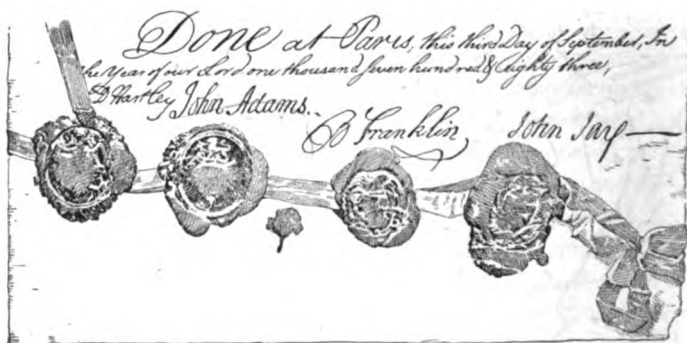 Done at Paris, this third Day of September, In
the Year of our Lord one thousand seven hundred & Eighty three,
D Hartley John Adams. B Franklin John Jay